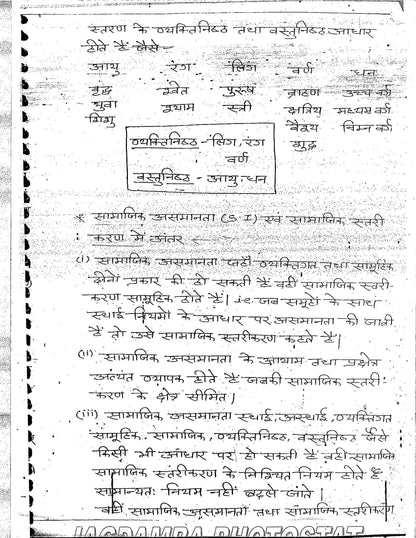 स्तरण के व्यक्तिनिष्ठ तथा वस्तुनिष्ठ आधार
होते हैं जैसे —
आयु रंग लिंग वर्ण धन
वृद्ध श्वेत पुरुष ब्राह्मण उच्च वर्ग
युवा श्याम स्त्री क्षत्रिय मध्यम वर्ग
शिशु वैश्य निम्न वर्ग
शुद्र
व्यक्तिनिष्ठ - लिंग, रंग
वर्ण
वस्तुनिष्ठ - आयु, धन
* सामाजिक असमानता (S.I) एवं सामाजिक स्तरी
करण में अंतर
(i) सामाजिक असमानता जहाँ व्यक्तिगत तथा सामूहिक
दोनों प्रकार की हो सकती है वहीं सामाजिक स्तरी-
करण सामूहिक होते हैं| i.e. जब समूहों के साथ
स्थाई नियमों के आधार पर असमानता की जाती
है तो उसे सामाजिक स्तरीकरण कहते हैं|
(ii) सामाजिक असमानता के आयाम तथा प्रक्षेत्र
अत्यंत व्यापक होते हैं जबकी सामाजिक स्तरी-
करण के क्षेत्र सीमित|
(iii) सामाजिक असमानता स्थाई, अस्थाई, व्यक्तिगत
सामूहिक, सामाजिक, व्यक्तिनिष्ठ, वस्तुनिष्ठ जैसे
किसी भी आधार पर हो सकती है वहीं सामाजिक
सामाजिक स्तरीकरण के निश्चित नियम होते हैं
सामान्यतः नियम नहीं बदले जाते|
वहीं सामाजिक असमानता तथा सामाजिक स्तरीकरण
JAGDAMBA PHOTOSTAT